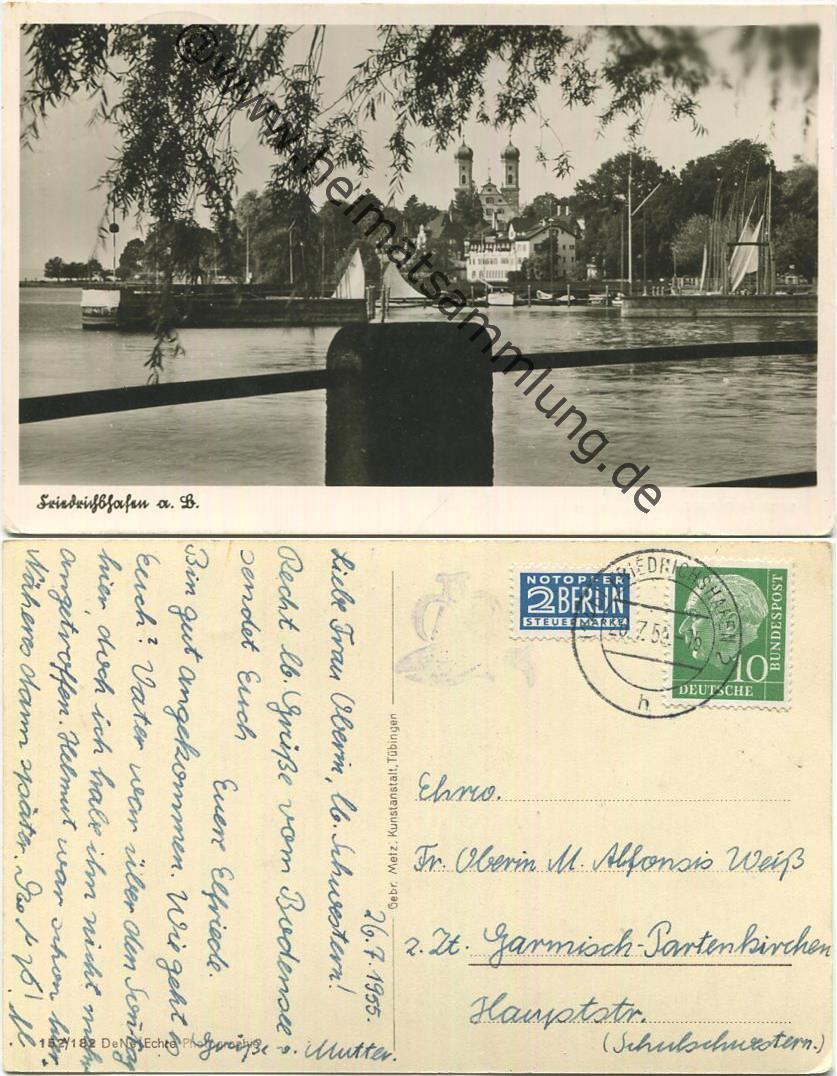 @www.heimatsammlung.de
Friedrichshafen a. B.
NOTOPFER
2 BERLIN
STEUERMARKE
FRIEDRICHSHAFEN 2
h
10
DEUTSCHE
BUNDESPOST
26.7.1955.
Liebe Frau Oberin, lb. Schwestern!
Recht lb. Grüße vom Bodensee
sendet Euch
Euere Elfriede.
Bin gut angekommen. Wie geht es
Euch? Vater war über den Sonntag
hier, doch ich habe ihn nicht mehr
angetroffen. Helmut war schon hier.
Näheres dann später.
Grüße v. Mutter.
Gebr. Metz, Kunstanstalt, Tübingen
Ehrw.
Fr. Oberin M. Alfonsis Weiß
z. Zt. Garmisch-Partenkirchen
Hauptstr.
(Schulschwestern.)
152/182 DeNe/Echte Photographie